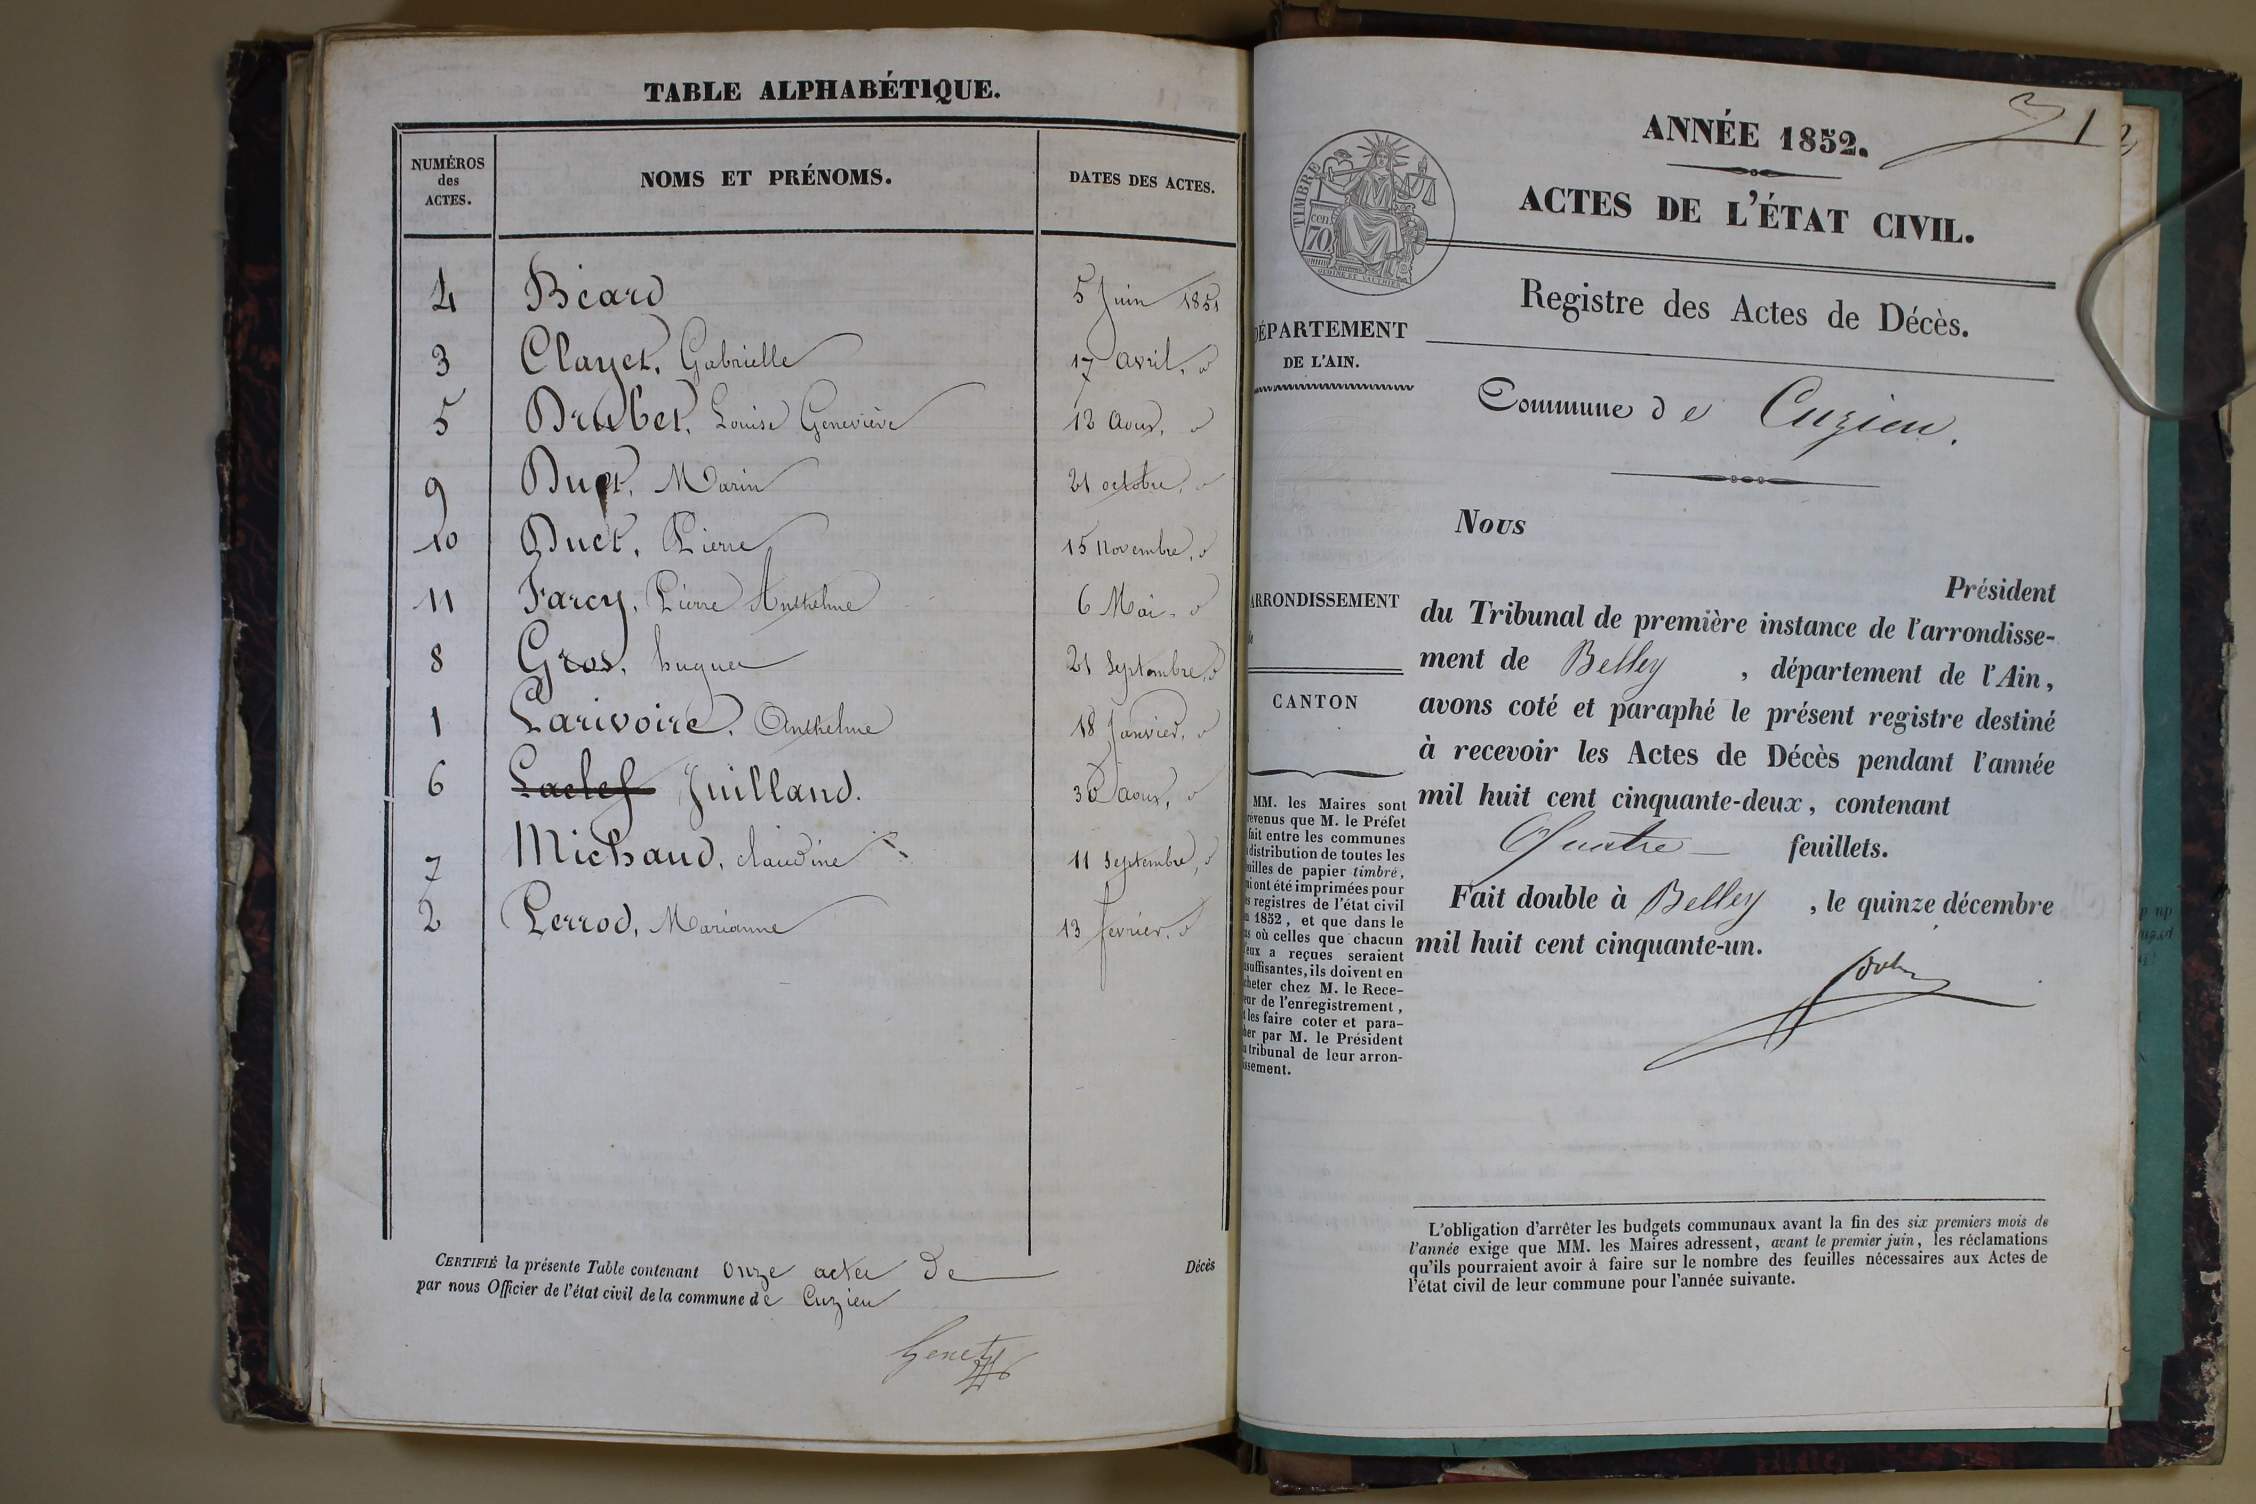 TABLE ALPHABÉTIQUE.
NUMÉROS des ACTES. NOMS ET PRÉNOMS. DATES DES ACTES.
4 Béard 5 Juin 1851
3 Clayet, Gabrielle 17 avril, d°
5 Drubet, Louise Geneviève 12 Aout, d°
9 Duet, Marin 21 octobre, d°
10 Duet, Pierre 15 Novembre, d°
11 Farcy, Pierre Anthelme 6 Mai d°
8 Gros, hugues 21 Septembre, d°
1 Larivoire, Anthelme 18 Janvier, d°
6 Laclef Juilland. 30 aout, d°
7 Michaud, claudine 11 Septembre, d°
2 Perrod, Marianne 13 fevrier, d°
CERTIFIÉ la présente Table contenant onze actes de Décès
par nous Officier de l'état civil de la commune de Cuzieu
Genet
1
ANNÉE 1852.
ACTES DE L'ÉTAT CIVIL.
TIMBRE
70 cen
Registre des Actes de Décès.
DÉPARTEMENT
DE L'AIN.
Commune de Cuzieu.
Nous
Président
du Tribunal de première instance de l'arrondisse-
ment de Belley, département de l'Ain,
avons coté et paraphé le présent registre destiné
à recevoir les Actes de Décès pendant l'année
mil huit cent cinquante-deux, contenant
Quatre feuillets.
Fait double à Belley, le quinze décembre
mil huit cent cinquante-un.
ARRONDISSEMENT
CANTON
MM. les Maires sont
revenus que M. le Préfet
fait entre les communes
distribution de toutes les
uilles de papier timbré,
ui ont été imprimées pour
es registres de l'état civil
n 1852, et que dans le
as où celles que chacun
'eux a reçues seraient
nsuffisantes, ils doivent en
cheter chez M. le Rece-
eur de l'enregistrement,
t les faire coter et para-
her par M. le Président
u tribunal de leur arron-
issement.
L'obligation d'arrêter les budgets communaux avant la fin des six premiers mois de
l'année exige que MM. les Maires adressent, avant le premier juin, les réclamations
qu'ils pourraient avoir à faire sur le nombre des feuilles nécessaires aux Actes de
l'état civil de leur commune pour l'année suivante.